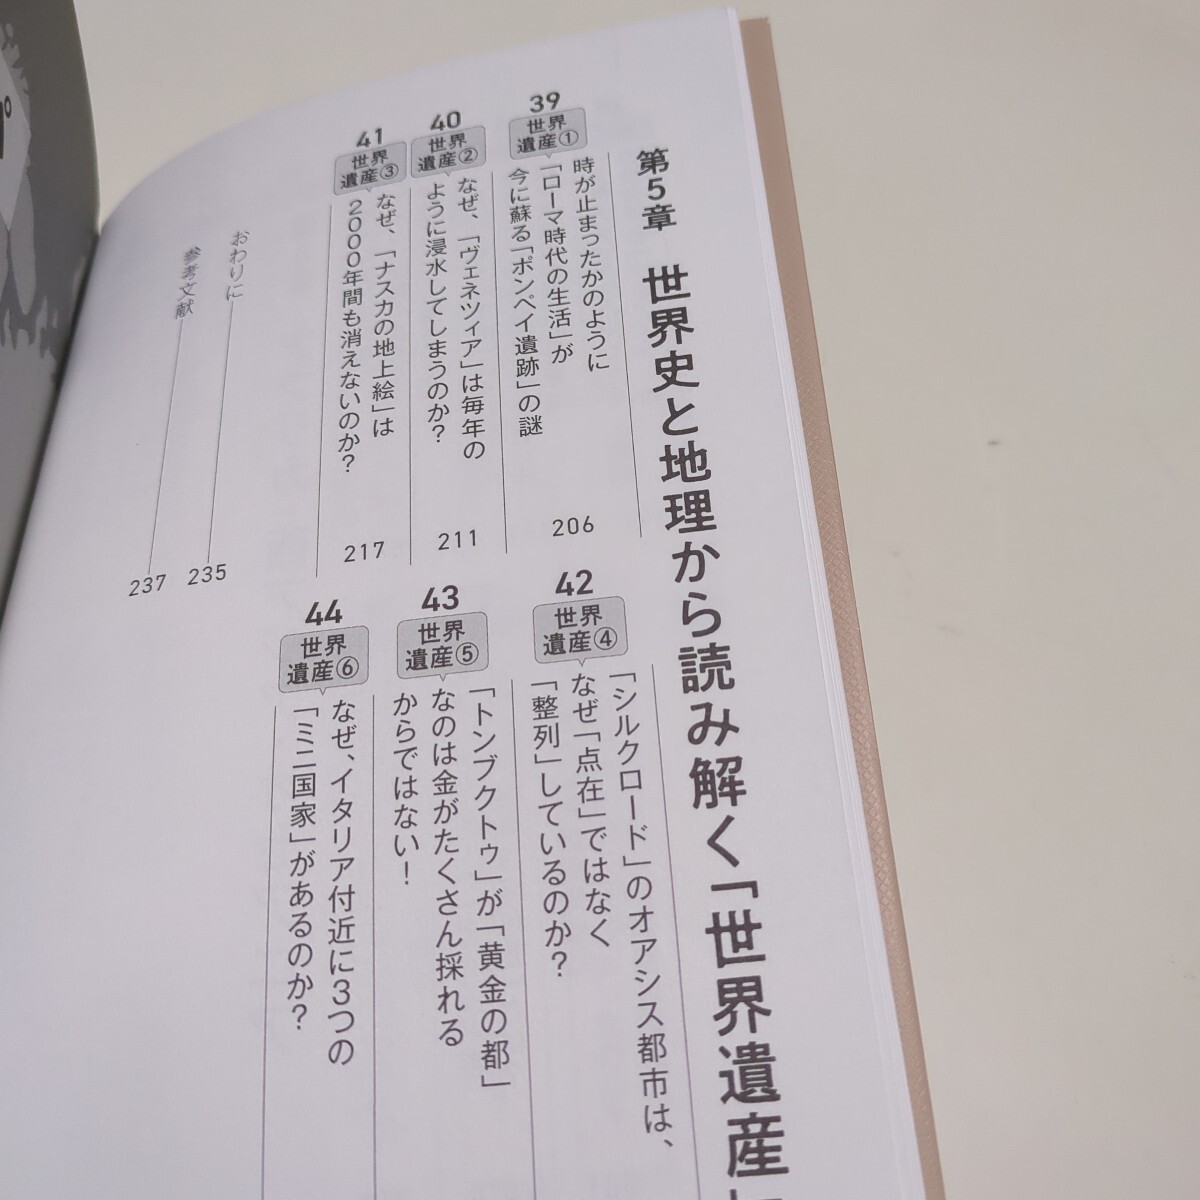 第5章 世界史と地理から読み解く「世界遺産」
39
世界
遺産①
時が止まったかのように
「ローマ時代の生活」が
今に蘇る「ポンペイ遺跡」の謎
206
40
世界
遺産②
なぜ、「ヴェネツィア」は毎年の
ように浸水してしまうのか?
211
41
世界
遺産③
なぜ、「ナスカの地上絵」は
2000年間も消えないのか?
217
42
世界
遺産④
「シルクロード」のオアシス都市は、
なぜ「点在」ではなく
「整列」しているのか?
43
世界
遺産⑤
「トンブクトゥ」が「黄金の都」
なのは金がたくさん採れる
からではない!
44
世界
遺産⑥
なぜ、イタリア付近に3つの
「ミニ国家」があるのか?
おわりに
235
参考文献
237